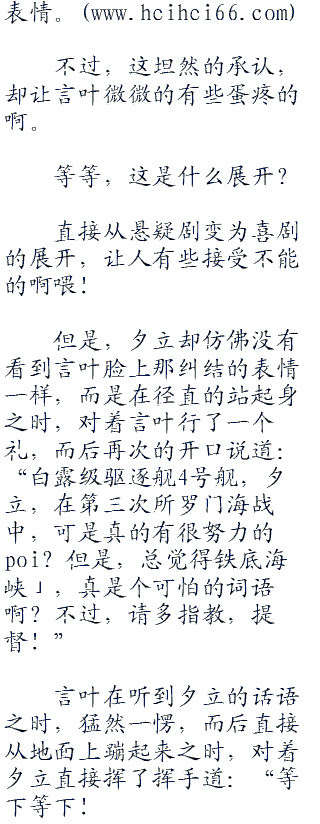 表情。(www.hcihci66.com)
不过，这坦然的承认，
却让言叶微微的有些蛋疼的
啊。
等等，这是什么展开？
直接从悬疑剧变为喜剧
的展开，让人有些接受不能
的啊喂！
但是，夕立却仿佛没有
看到言叶脸上那纠结的表情
一样，而是在径直的站起身
之时，对着言叶行了一个
礼，而后再次的开口说道：
“白露级驱逐舰4号舰，夕
立，在第三次所罗门海战
中，可是真的有很努力的
poi？但是，总觉得铁底海
峡」，真是个可怕的词语
啊？不过，请多指教，提
督！”
言叶在听到夕立的话语
之时，猛然一愣，而后直接
从地面上蹦起来之时，对着
夕立直接挥了挥手道：“等
下等下！